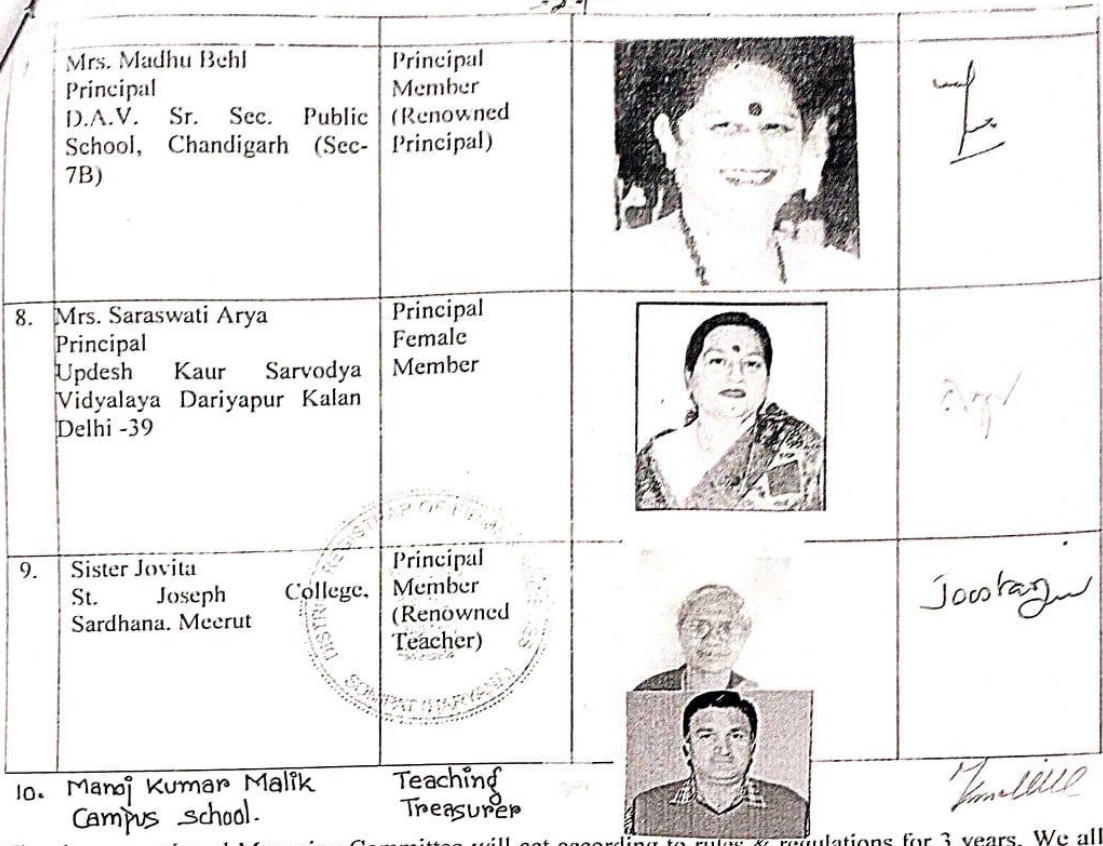 Mrs. Madhu Behl
Principal
D.A.V. Sr. Sec. Public
School, Chandigarh (Sec-
7B)
Principal
Member
(Renowned
Principal)
8.
Mrs. Saraswati Arya
Principal
Updesh Kaur Sarvodya
Vidyalaya Dariyapur Kalan
Delhi -39
Principal
Female
Member
9.
Sister Jovita
St. Joseph College,
Sardhana. Meerut
Principal
Member
(Renowned
Teacher)
10.
Manoj Kumar Malik
Campus school.
Teaching
Treasurer
Managing Committee will act according to rules & regulations for 3 years. We all